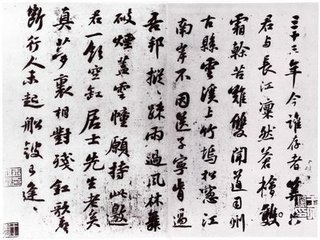 三十三年今誰存者算只
君與長江凜然蒼檜
霜榦苦難雙聞道司州
古縣雲溪上竹塢松窗江
南岸不因送子寧肯過
吾邦摐摐疎雨過風林舞
破煙蓋雲幢願持此邀
君一飲空缸居士先生老矣
真夢裏相對殘釭歌舞
斷行人未起船鼓已逢逢